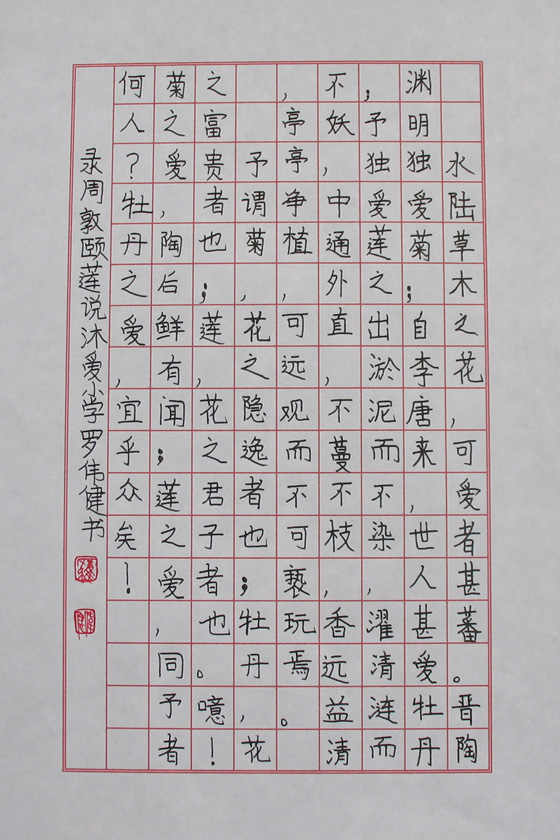 水陆草木之花，可爱者甚蕃。晋陶
渊明独爱菊；自李唐来，世人甚爱牡丹
；予独爱莲之出淤泥而不染，濯清涟而
不妖，中通外直，不蔓不枝，香远益清
，亭亭争植，可远观而不可亵玩焉。
予谓菊，花之隐逸者也；牡丹，花
之富贵者也；莲，花之君子者也。噫！
菊之爱，陶后鲜有闻；莲之爱，同予者
何人？牡丹之爱，宜乎众矣！
录周敦颐莲说沐爱小学罗伟健书